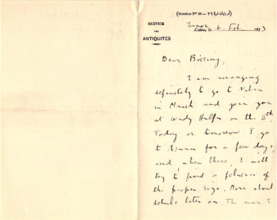 SERVICE
DES
ANTIQUITÉS
6. Feb. 1913
Dear Birtwy,
I am arranging
definitely to go to
in March and join you
at Wady Halfa on the 5th
Today or tomorrow I go
to for a few days,
and when there, I will
try to find a felucca of
the proper size. More about
details later on. The man I